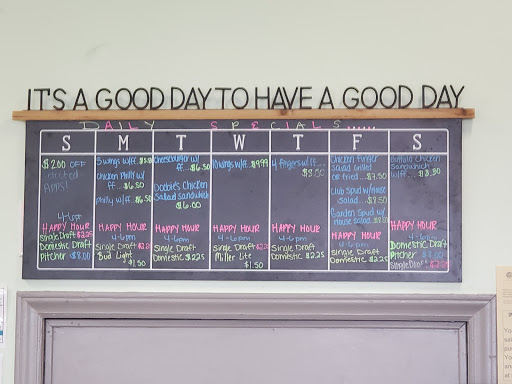 IT'S A GOOD DAY TO HAVE A GOOD DAY
DAILY SPECIALS.....
S M T W T F S
$2.00 OFF
Apps!
4-6pm
HAPPY HOUR
Single Draft $2.25
Domestic Draft
Pitcher $8.00
5 wings w/ff..
Chicken Philly w/
ff...$6.50
Philly w/ff.$6.50
HAPPY HOUR
4-6pm
Single Draft
Bud Light
$1.50
Cheeseburger w/
ff...$6.50
Debbie's Chicken
Salad Sandwich
$6.00
HAPPY HOUR
4-6pm
Single Draft
Domestic $2.25
10 wings w/ff..$9.99
HAPPY HOUR
4-6pm
Single Draft
Miller Lite
$1.50
4 fingers w/ff...
$8.00
HAPPY HOUR
4-6pm
Single Draft
Domestic $2.25
Chicken Finger
Salad Grilled
or fried...$7.50
Club Spud w/House
salad...$7.50
Garden Spud w/
House salad
HAPPY HOUR
4-6pm
Single Draft
Domestic $2.25
Buffalo Chicken
Sandwich
w/ff...$8.50
HAPPY HOUR
4-6pm
Domestic Draft
Pitcher $8.00
Single Draft